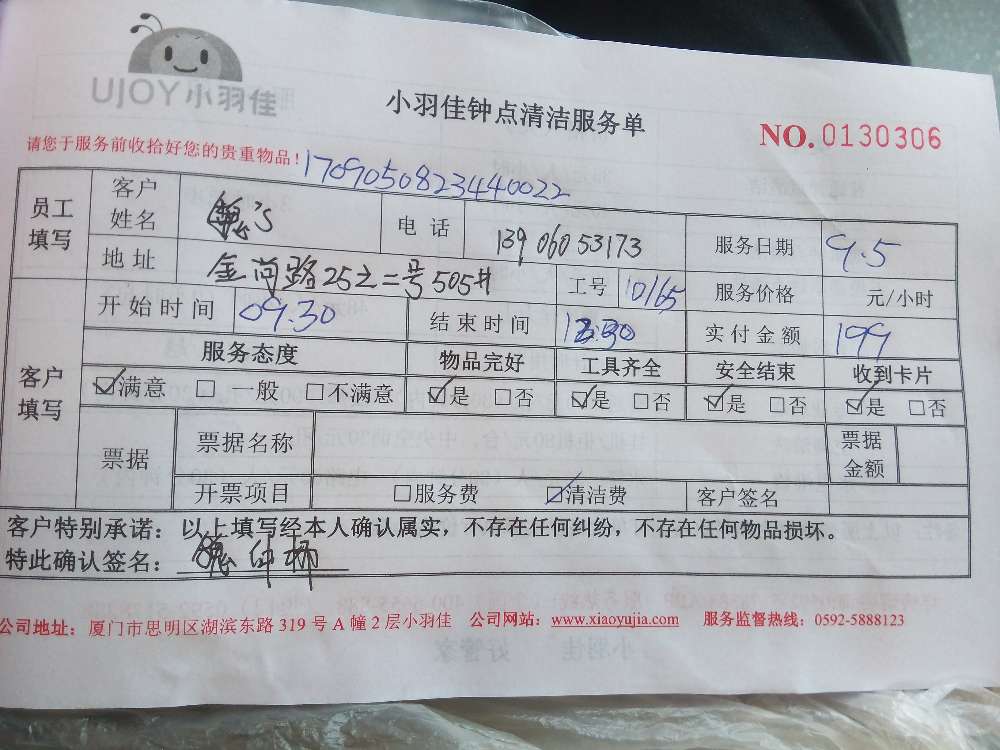 UJOY小羽佳
小羽佳钟点清洁服务单
NO.0130306
请您于服务前收拾好您的贵重物品！
1709050823440022
员工填写 客户姓名 魏's 电话 13906053173 服务日期 9.5
地址 金尚路25之二号505# 工号 10165 服务价格 元/小时
开始时间 09.30 结束时间 实付金额 199
客户填写 服务态度 物品完好 工具齐全 安全结束 收到卡片
☑满意 □一般 □不满意 ☑是 □否 ☑是 □否 ☑是 □否 ☑是 □否
票据 票据名称 票据金额
开票项目 □服务费 ☑清洁费 客户签名
客户特别承诺：以上填写经本人确认属实，不存在任何纠纷，不存在任何物品损坏。
特此确认签名：魏仲
公司地址：厦门市思明区湖滨东路319号A幢2层小羽佳 公司网站：www.xiaoyujia.com 服务监督热线：0592-5888123